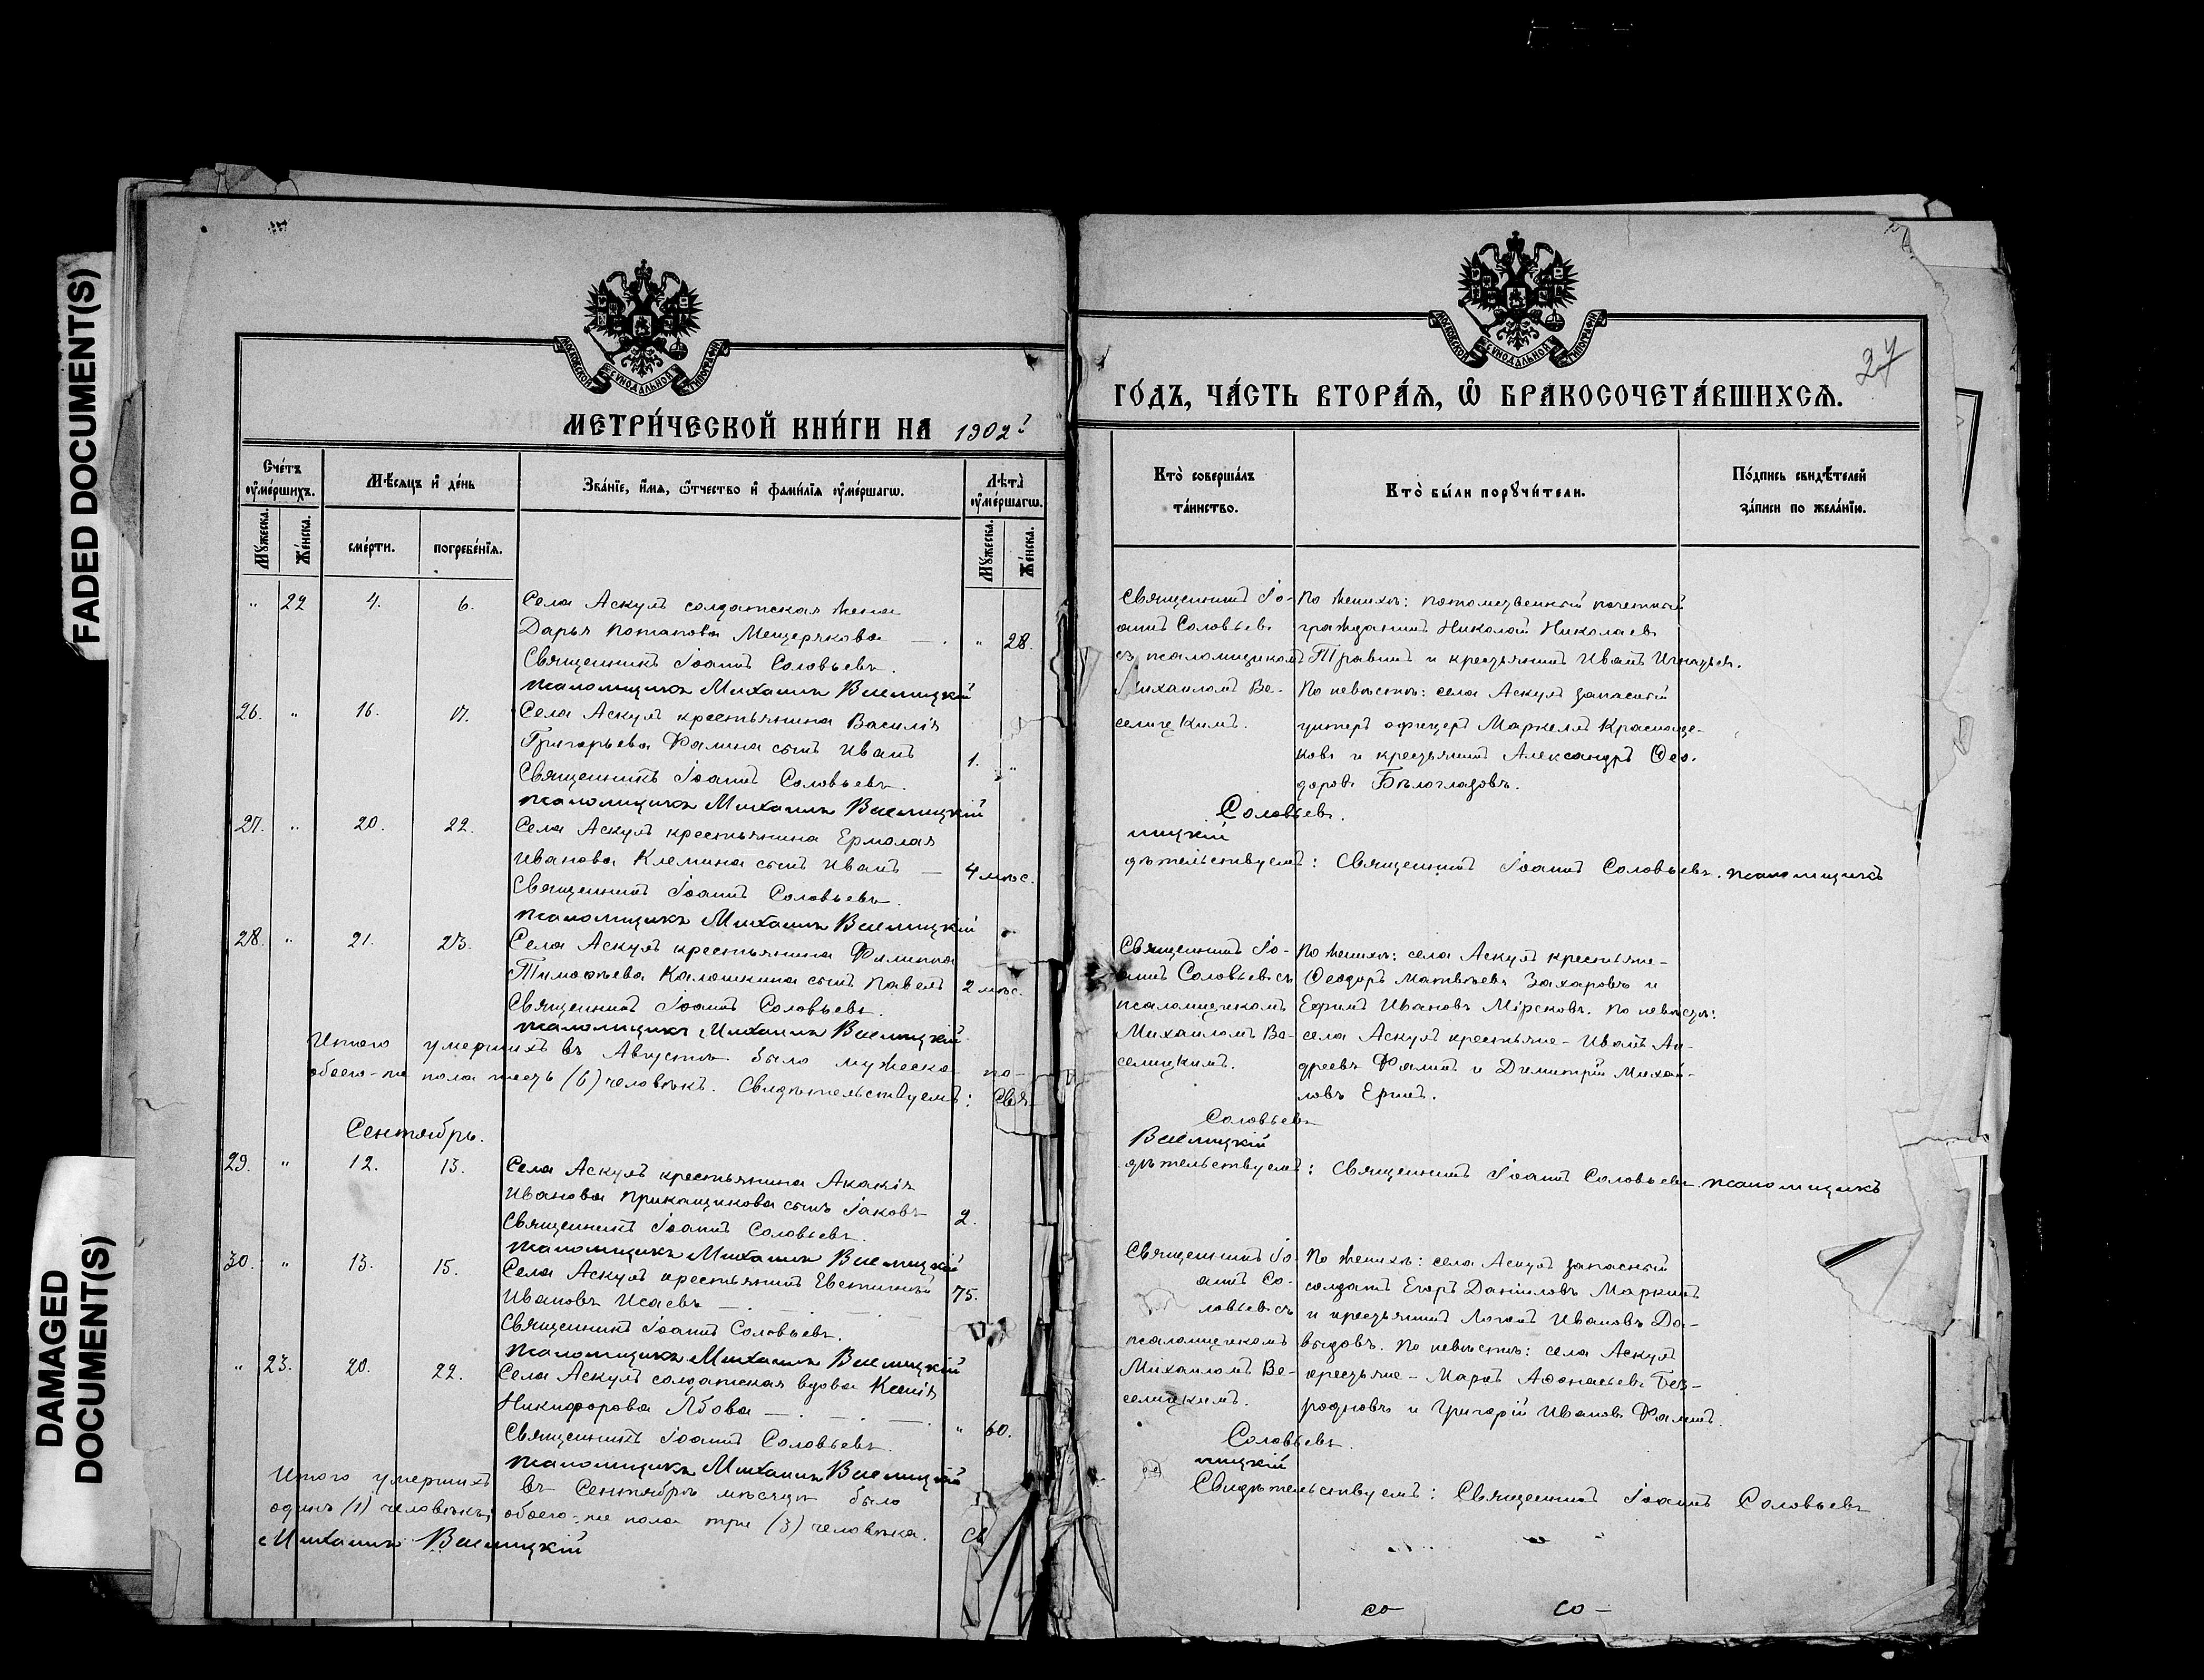 FADED DOCUMENT(S)
DAMAGED
DOCUMENT(S)
МОСКОВСКОЙ СѴНОДАЛЬНОЙ ТИПОГРАФІИ
МЕТРИ́ЧЕСКОЙ КНИ́ГИ НА 1902 г
Сче́тъ
ᲂу҆ме́ршихъ.
Мѣсяцъ и҆ де́нь
Зва́нїе, и҆́мѧ, ѻ҆́тчество и҆ фами́лїѧ ᲂу҆ме́ршагѡ.
Лѣта̀
ᲂу҆ме́ршагѡ.
Мꙋ́жеска.
Же́нска.
сме́рти.
погребе́нїѧ.
Мꙋ́жеска.
Же́нска.
" 22 4. 6. Села Аскулъ солдатская жена
Дарья Потапова Мещерякова — . " 28.
Священникъ Іоаннъ Соловьевъ.
Псаломщикъ Михаилъ Веселицкій
26. " 16. 17. Села Аскулъ крестьянина Василія
Григорьева Фалина сынъ Иванъ 1. "
Священникъ Іоаннъ Соловьевъ.
Псаломщикъ Михаилъ Веселицкій
27. " 20. 22. Села Аскулъ крестьянина Ермолая
Иванова Клемина сынъ Иванъ — 4 мѣс.
Священникъ Іоаннъ Соловьевъ.
Псаломщикъ Михаилъ Веселицкій
28. " 21. 23. Села Аскулъ крестьянина Филиппа
Тимофѣева Калошкина сынъ Павелъ 2 мѣс.
Священникъ Іоаннъ Соловьевъ.
Псаломщикъ Михаилъ Веселицкій
Итого умершихъ въ Августѣ было мужеска по-
обоего-же пола шесть (6) человѣкъ. Свидѣтельствуемъ: Свя-
Сентябрь.
29. " 12. 13. Села Аскулъ крестьянина Акакія
Иванова Прикащикова сынъ Іаковъ 2.
Священникъ Іоаннъ Соловьевъ.
Псаломщикъ Михаилъ Веселицкій
30. " 13. 15. Села Аскулъ крестьянинъ Евстигній
Ивановъ Исаевъ — . — . — 75.
Священникъ Іоаннъ Соловьевъ.
Псаломщикъ Михаилъ Веселицкій
" 23. 20. 22. Села Аскулъ солдатская вдова Ксенія
Никифорова Лбова — . — . — . " 60.
Священникъ Іоаннъ Соловьевъ.
Псаломщикъ Михаилъ Веселицкій
Итого умершихъ въ Сентябрѣ мѣсяцѣ было
одинъ (1) человѣкъ; обоего-же пола три (3) человѣка. Св
Михаилъ Веселицкій
МОСКОВСКОЙ СѴНОДАЛЬНОЙ ТИПОГРАФІИ
27
ГО́ДЪ, ЧА́СТЬ ВТОРА́Ѧ, Ѡ҆ БРАКОСОЧЕТА́ВШИХСѦ.
Кто̀ соверша́лъ
та́инство.
Кто̀ бы́ли порꙋчи́тели.
По́дпись свидѣ́телей
за́писи по жела́нїю.
Священникъ Іо-
аннъ Соловьевъ
съ псаломщикомъ
Михаиломъ Ве-
селицкимъ.
По женихѣ: потомственный почетный
гражданинъ Николай Николаевъ
Травинъ и крестьянинъ Иванъ Игнатьев.
По невѣстѣ: села Аскулъ запасный
унтеръ офицеръ Маркеллъ Краснощe-
ковъ и крестьянинъ Александръ Ѳео-
доровъ Бѣлоглазовъ.
Соловьевъ.
лицкій
дѣтельствуемъ: Священникъ Іоаннъ Соловьевъ. псаломщикъ
Священникъ Іо-
аннъ Соловьевъ съ
псаломщикомъ
Михаиломъ Ве-
селицкимъ.
По женихѣ: села Аскулъ крестьяне-
Ѳеодоръ Матвѣевъ Захаровъ и
Ефимъ Ивановъ Мірсковъ. По невѣстѣ:
села Аскулъ крестьяне - Иванъ Ан-
дреевъ Фалинъ и Димитрій Михай-
ловъ Еринъ.
Соловьевъ
Веселицкій
дѣтельствуемъ: Священникъ Іоаннъ Соловьевъ псаломщикъ
Священникъ Іо-
аннъ Со-
ловьевъ съ
псаломщикомъ
Михаиломъ Ве-
селицкимъ.
По женихѣ: села Аскулъ запасный
солдатъ Егоръ Даніиловъ Маркинъ
и крестьянинъ Логинъ Ивановъ Да-
выдовъ. По невѣстѣ: села Аскулъ
крестьяне - Маркъ Аѳонасьевъ Без-
родновъ и Григорій Ивановъ Фалинъ.
Соловьевъ.
лицкій
Свидѣтельствуемъ: Священникъ Іоаннъ Соловьевъ
со- со-